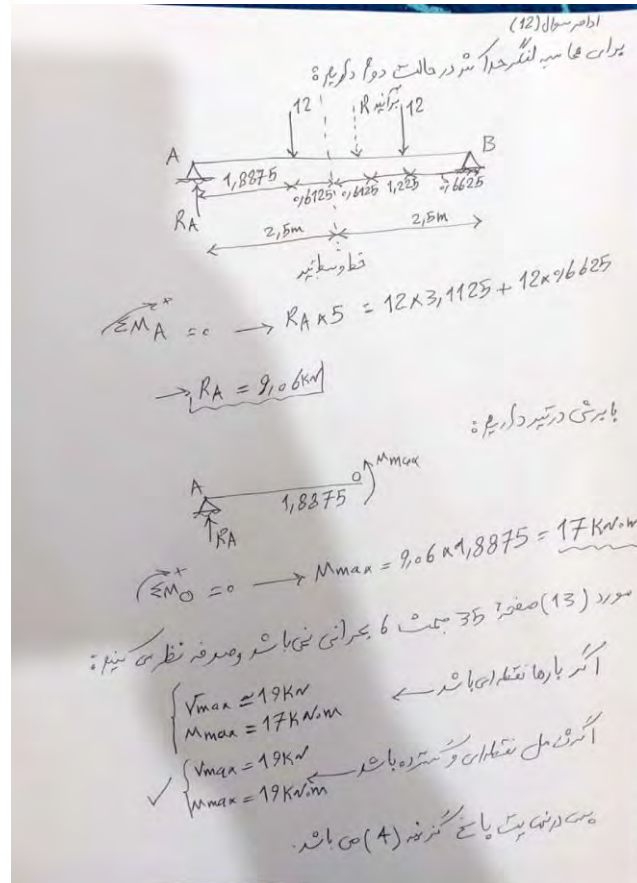 ادامه سوال (12)
برای محاسبه لنگر حداکثر در حالت دوم داریم:
12 برآیند R 12
A B
1,8875 0,6125 0,6125 1,225 0,6625
RA
2,5m 2,5m
خط وسط تیر
ΣMA = 0 → RA × 5 = 12×3,1125 + 12×0,6625
→ RA = 9,06KN
با برش در تیر داریم:
A O Mmax
1,8875
RA
ΣMO = 0 → Mmax = 9,06 × 1,8875 = 17 KN.m
مورد (13) صفحه 35 مبحث 6 بحرانی نمی باشد و صرفه نظر می کنیم:
اگر بارها نقطه ای باشد ← { Vmax ≃ 19KN
Mmax = 17KN.m
نقطه ای و گسترده باشد ← { Vmax = 19KN
Mmax = 19KN.m ✓
پس در نهایت پاسخ گزینه (4) می باشد.